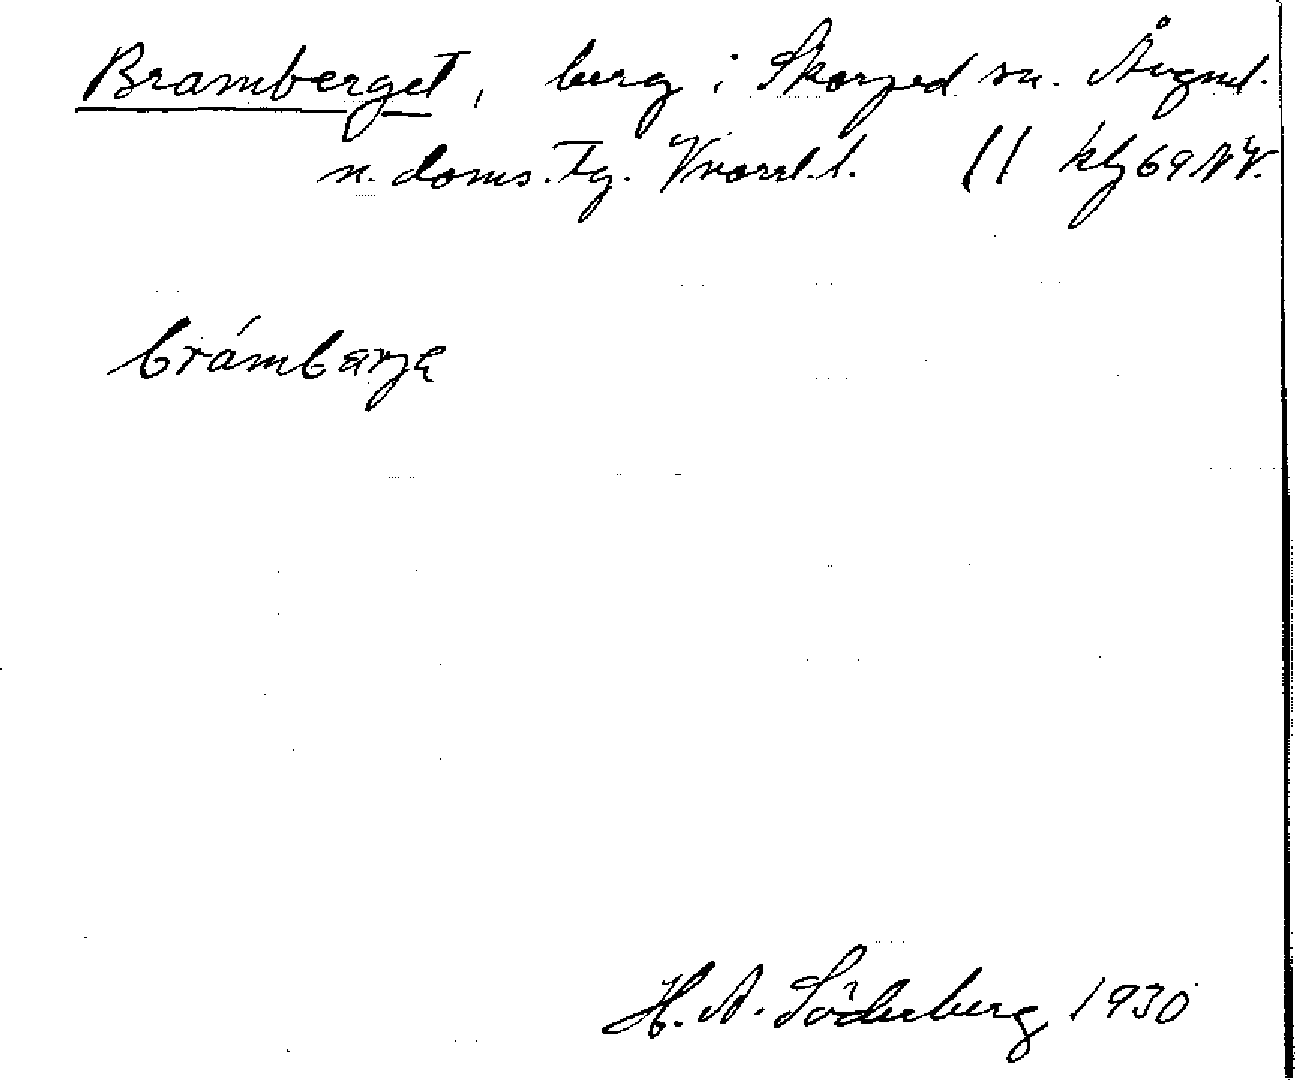 Bramberget, berg i Skorped sn. Ångml.
n. doms. tg. Vnorrl. l. // kbl 69 NV.
brámbærję
H. A. Söderberg 1930